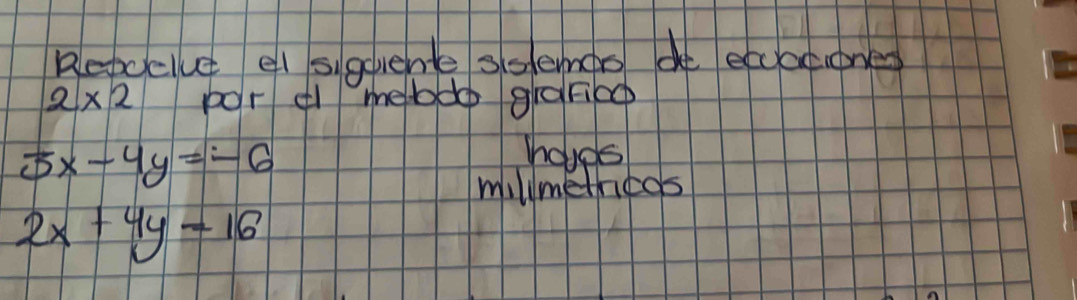 Resuelve el siguiente sistemas de ecuaciones
2x2 por el metodo grafico
3x - 4y = -6
hojas
milimetricas
2x + 4y = 16